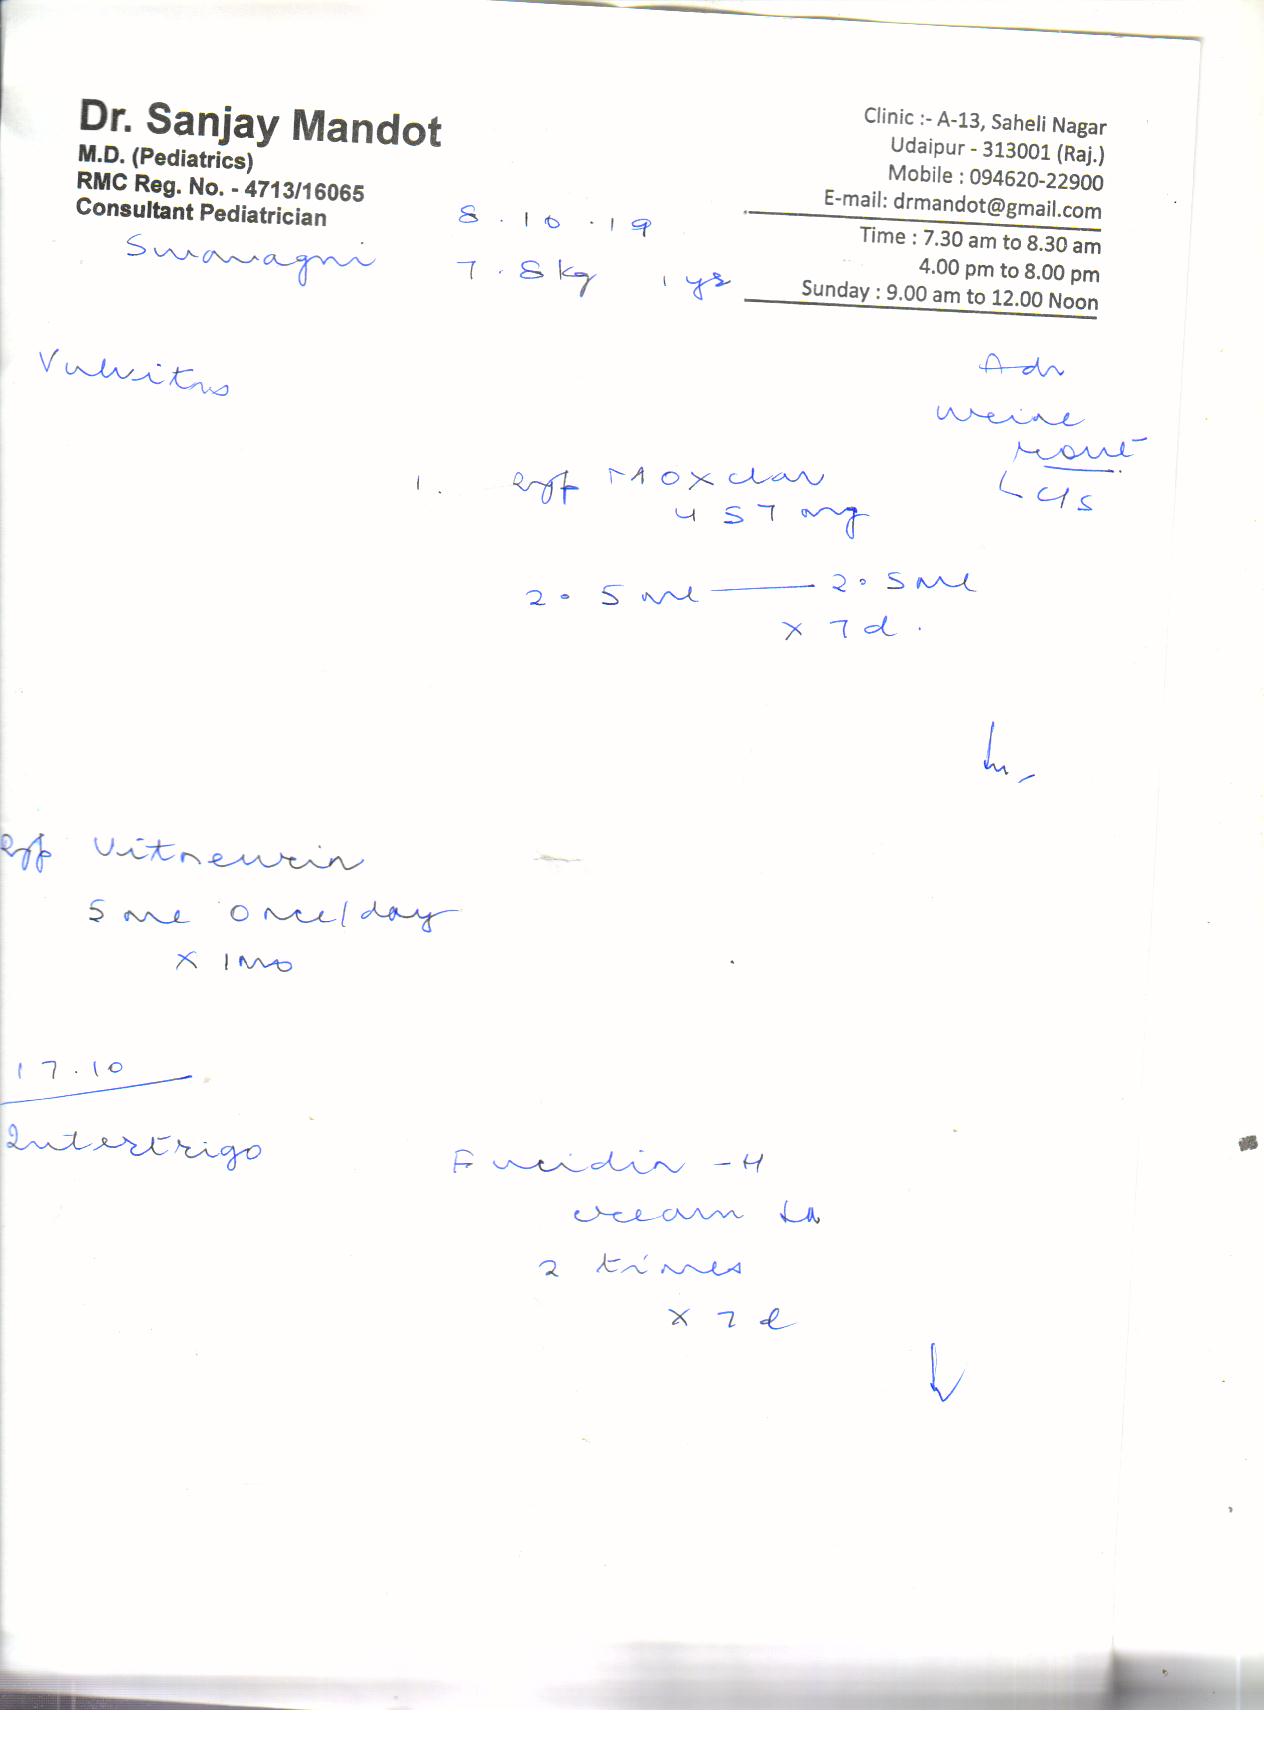 Dr. Sanjay Mandot
M.D. (Pediatrics)
RMC Reg. No. - 4713/16065
Consultant Pediatrician
Clinic :- A-13, Saheli Nagar
Udaipur - 313001 (Raj.)
Mobile : 094620-22900
E-mail: drmandot@gmail.com
Time : 7.30 am to 8.30 am
4.00 pm to 8.00 pm
Sunday : 9.00 am to 12.00 Noon
8.10.19
7.8kg 1 yr
Vulvitis
Adv
Urine
rout
C/s
1. Syp Moxclav
457 mg
2.5 ml — 2.5 ml
x 7d.
Syp Vitneurin
5 ml Once/day
x 1mo
17.10
Intertrigo
Fucidin-H
cream
2 times
x 7d